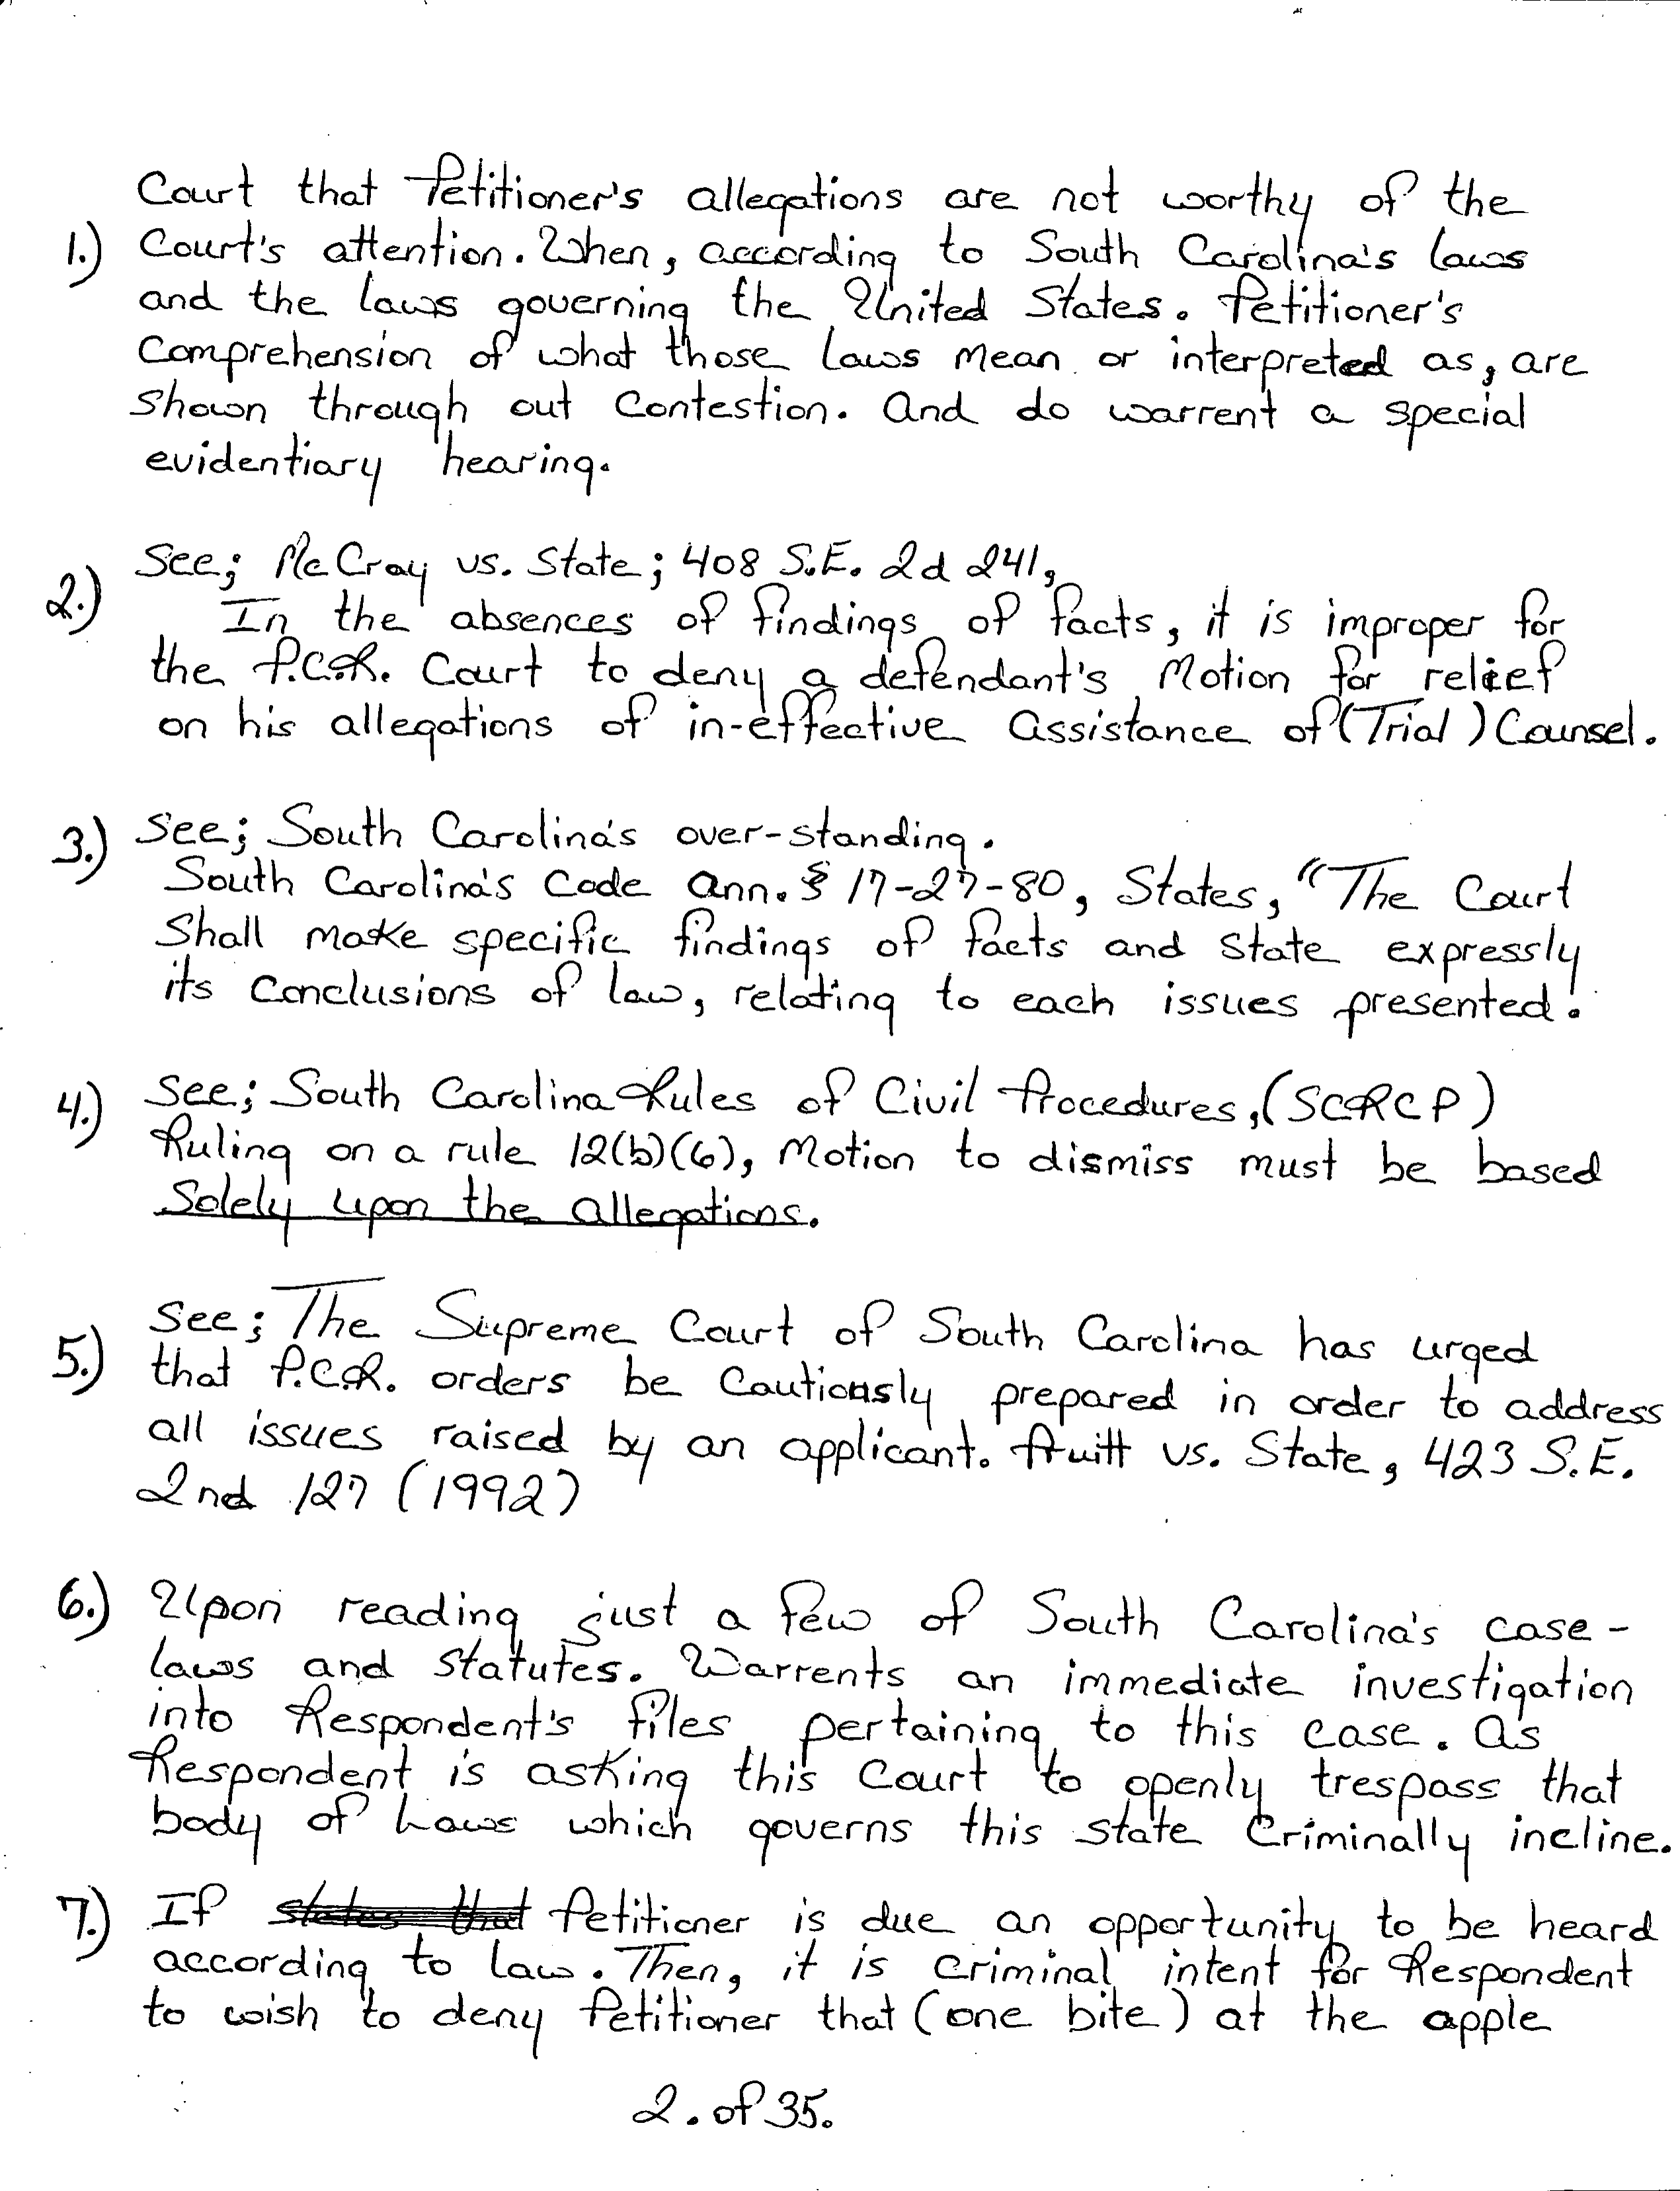 Court that Petitioner's allegations are not worthy of the
1.) Court's attention. When, according to South Carolina's laws
and the laws governing the United States. Petitioner's
Comprehension of what those laws mean or interpreted as, are
Shown through out Contestion. And do warrent a special
evidentiary hearing.
See; McCray vs. State; 408 S.E. 2d 241,
2.) In the absences of findings of facts, it is improper for
the P.C.R. Court to deny a defendant's Motion for relief
on his allegations of in-effective Assistance of (Trial) Counsel.
3.) See; South Carolina's over-standing.
South Carolina's Code Ann. § 17-27-80, States, "The Court
Shall make specific findings of facts and state expressly
its Conclusions of law, relating to each issues presented.
4.) See; South Carolina Rules of Civil Procedures, (SCRCP)
Ruling on a rule 12(b)(6), Motion to dismiss must be based
Solely upon the Allegations.
See; The Supreme Court of South Carolina has urged
5.) that P.C.R. orders be Cautiously prepared in order to address
all issues raised by an applicant. Pruitt vs. State, 423 S.E.
2nd 127 (1992)
6.) Upon reading just a few of South Carolina's case-
laws and statutes. Warrents an immediate investigation
into Respondent's files pertaining to this case. As
Respondent is asking this Court to openly trespass that
body of Laws which governs this state Criminally incline.
7.) If states that Petitioner is due an opportunity to be heard
according to law. Then, it is Criminal intent for Respondent
to wish to deny Petitioner that (one bite) at the apple
2. of 35.